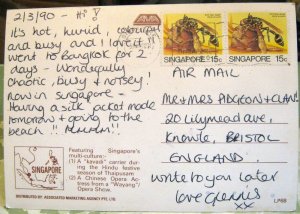 2/3/90 - Hi!
it's hot, humid, colourful
and busy and I love it
went to Bangkok for 2
days - Wonderfully
chaotic, busy & noisey!
Now in singapore -
Having a silk jacket made
tomorrow & going to the
beach !!
SINGAPORE 15c
SINGAPORE 15c
AIR MAIL
MR & MRS PIDGEON & CLAN
20 Lilymead ave,
Knowle, BRISTOL
ENGLAND.
write to you later
love
xx
SINGAPORE
Featuring Singapore's
multi-culture:-
(1) A "kavadi" carrier during
the Hindu festive
season of Thaipusam
(2) A Chinese Opera Ac-
tress from a "Wayang"/
Opera Show.
DISTRIBUTED BY: ASSOCIATED MARKETING AGENCY, CLEMENTI
LP68